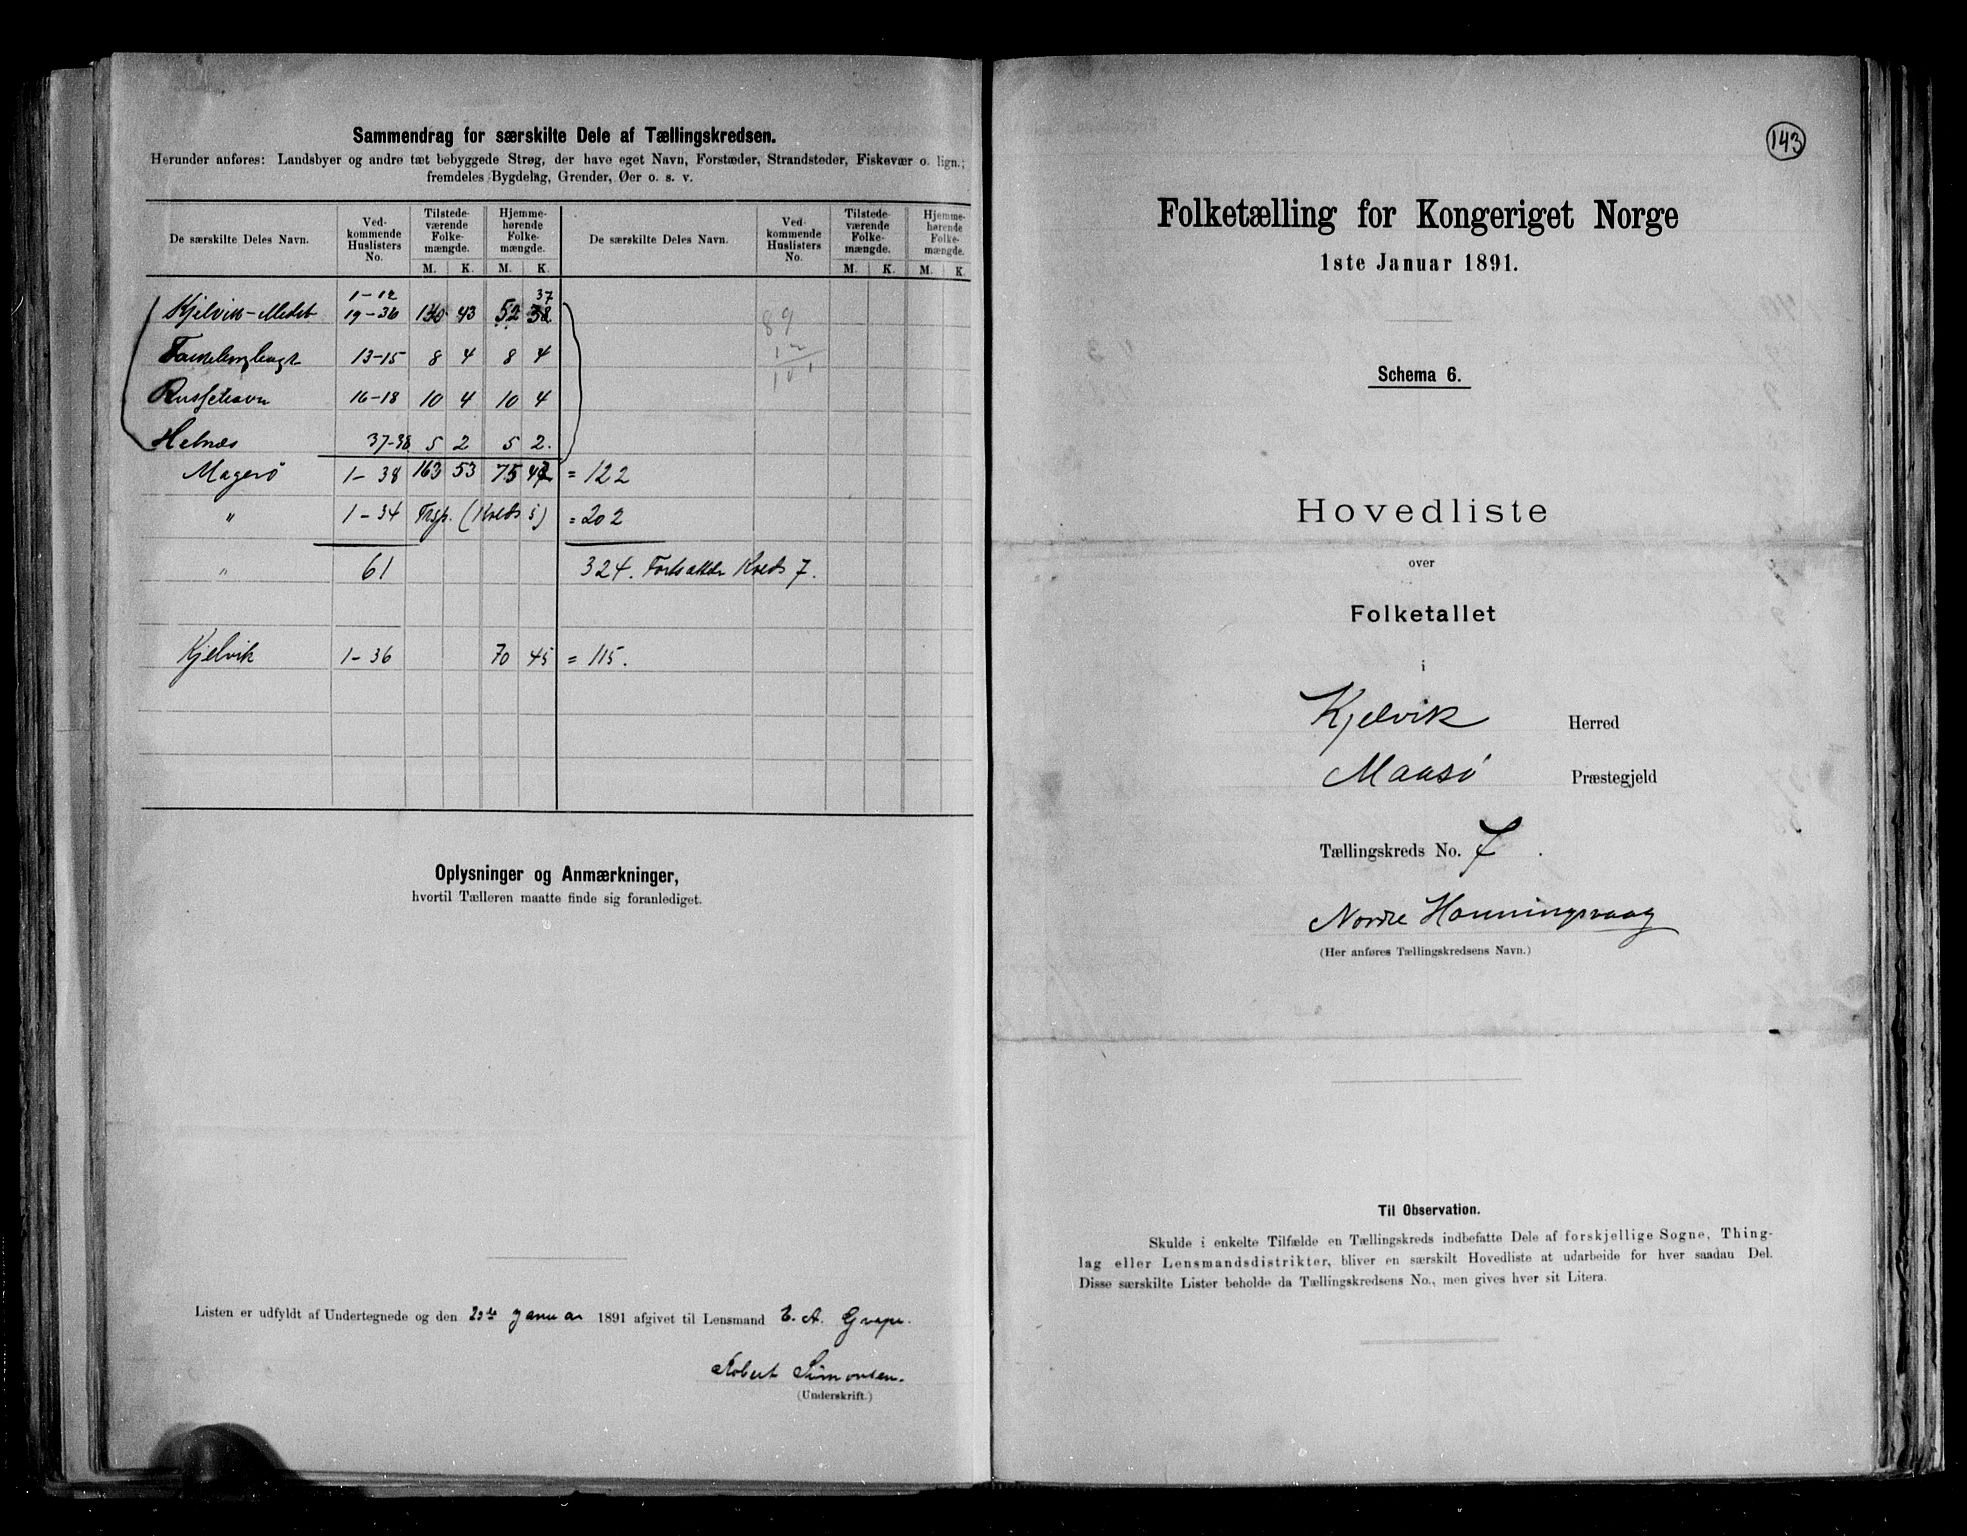 Sammendrag for særskilte Dele af Tællingskredsen.
Herunder anføres: Landsbyer og andre tæt bebyggede Strøg, der have eget Navn, Forstæder, Strandsteder, Fiskevær o. lign.;
fremdeles Bygdelag, Grender, Øer o. s. v.
De særskilte Deles Navn. Ved-kommende Huslisters No. Tilstede-værende Folke-mængde. M. K. Hjemme-hørende Folke-mængde. M. K. De særskilte Deles Navn. Ved-kommende Huslisters No. Tilstede-værende Folke-mængde. M. K. Hjemme-hørende Folke-mængde. M. K.
1-12 37
Kjelvik 19-36 43 52 89
13-15 8 4 8 4 12
101
16-18 10 4 10 4
Helnæs 37-38 5 2 5 2.
Magerø 1-38 163 53 75 47 = 122
" 1-34 Trsp. (Kreds 5) = 202
" 61 324. Kreds 7.
Kjelvik 1-36 70 45 = 115.
Oplysninger og Anmærkninger,
hvortil Tælleren maatte finde sig foranlediget.
Listen er udfyldt af Undertegnede og den 23de Januar 1891 afgivet til Lensmand E. A. Grape.
Robert Simonsen.
(Underskrift.)
143
Folketælling for Kongeriget Norge
1ste Januar 1891.
Schema 6.
Hovedliste
over
Folketallet
i
Kjelvik Herred
Maasø Præstegjeld
Tællingskreds No. 7.
Nordre Honningsvaag
(Her anføres Tællingskredsens Navn.)
Til Observation.
Skulde i enkelte Tilfælde en Tællingskreds indbefatte Dele af forskjellige Sogne, Thing-
lag eller Lensmandsdistrikter, bliver en særskilt Hovedliste at udarbeide for hver saadan Del.
Disse særskilte Lister beholde da Tællingskredsens No., men gives hver sit Litera.